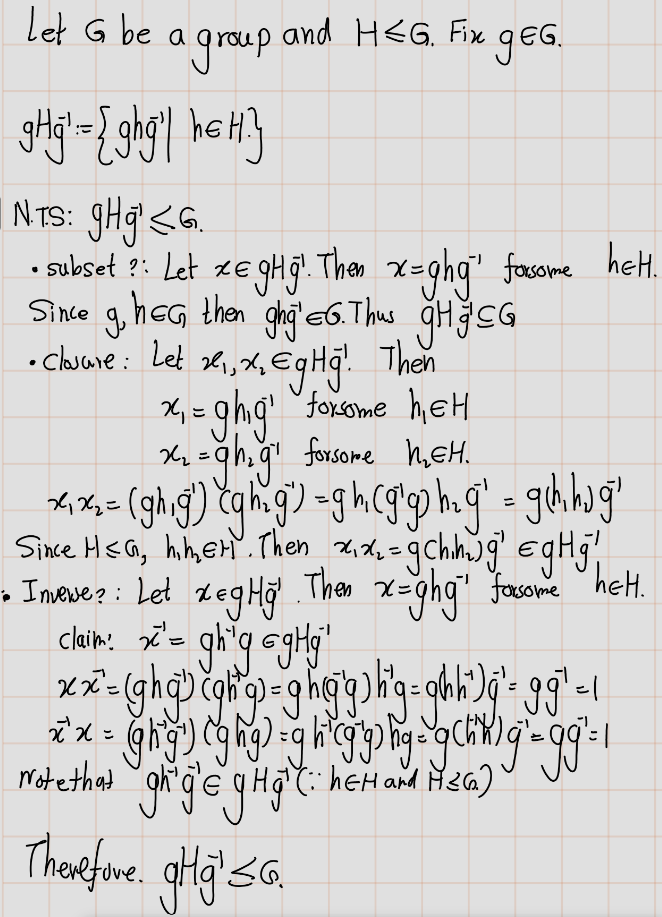 Let G be a group and H≤G. Fix g∈G.
gHg⁻¹:={ghg⁻¹| h∈H.}
N.T.S: gHg⁻¹≤G.
• subset ?: Let x∈gHg⁻¹. Then x=ghg⁻¹ forsome h∈H.
Since g,h∈G then ghg⁻¹∈G. Thus gHg⁻¹⊆G
• Closure: Let x₁,x₂∈gHg⁻¹. Then
x₁ = gh₁g⁻¹ forsome h₁∈H
x₂ = gh₂g⁻¹ forsome h₂∈H.
x₁x₂=(gh₁g⁻¹)(gh₂g⁻¹)=gh₁(g⁻¹g)h₂g⁻¹ = g(h₁h₂)g⁻¹
Since H≤G, h₁h₂∈H. Then x₁x₂=g(h₁h₂)g⁻¹ ∈gHg⁻¹
• Inverse?: Let x∈gHg⁻¹. Then x=ghg⁻¹ forsome h∈H.
claim: x⁻¹= gh⁻¹g ∈gHg⁻¹
xx⁻¹=(ghg⁻¹)(gh⁻¹g)=gh(g⁻¹g)h⁻¹g=g(hh⁻¹)g⁻¹=gg⁻¹=1
x⁻¹x = (gh⁻¹g⁻¹)(ghg)=gh⁻¹(g⁻¹g)hg=g(h⁻¹h)g⁻¹=gg⁻¹=1
Note that gh⁻¹g⁻¹∈gHg⁻¹(∵ h∈H and H≤G.)
Therefore. gHg⁻¹≤G.